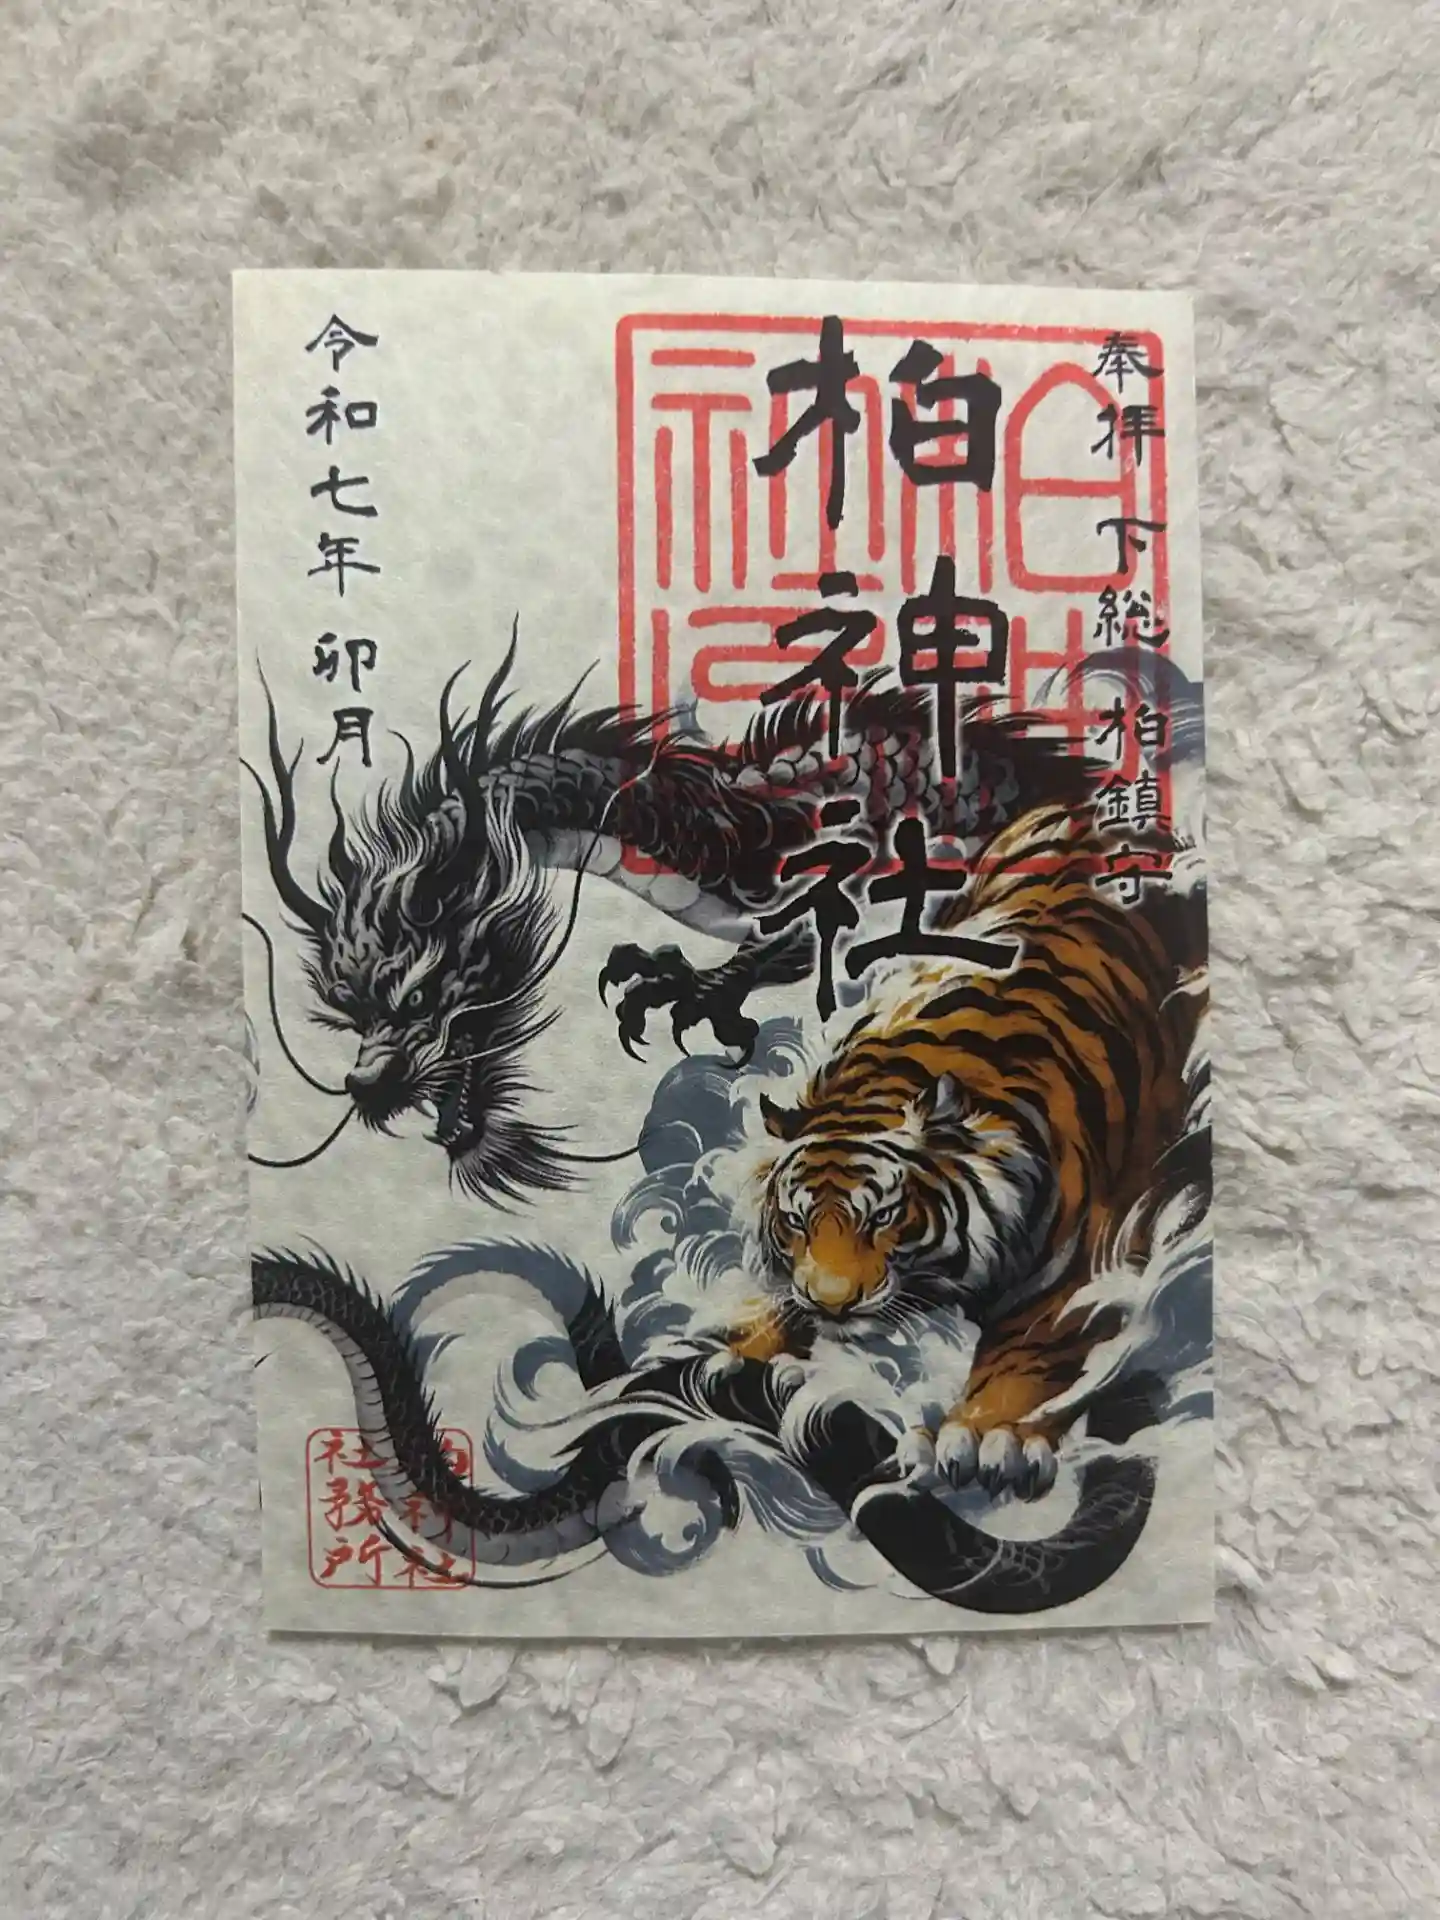 奉拝 下総 柏鎮守
柏神社
令和七年 卯月
柏神社
社務所